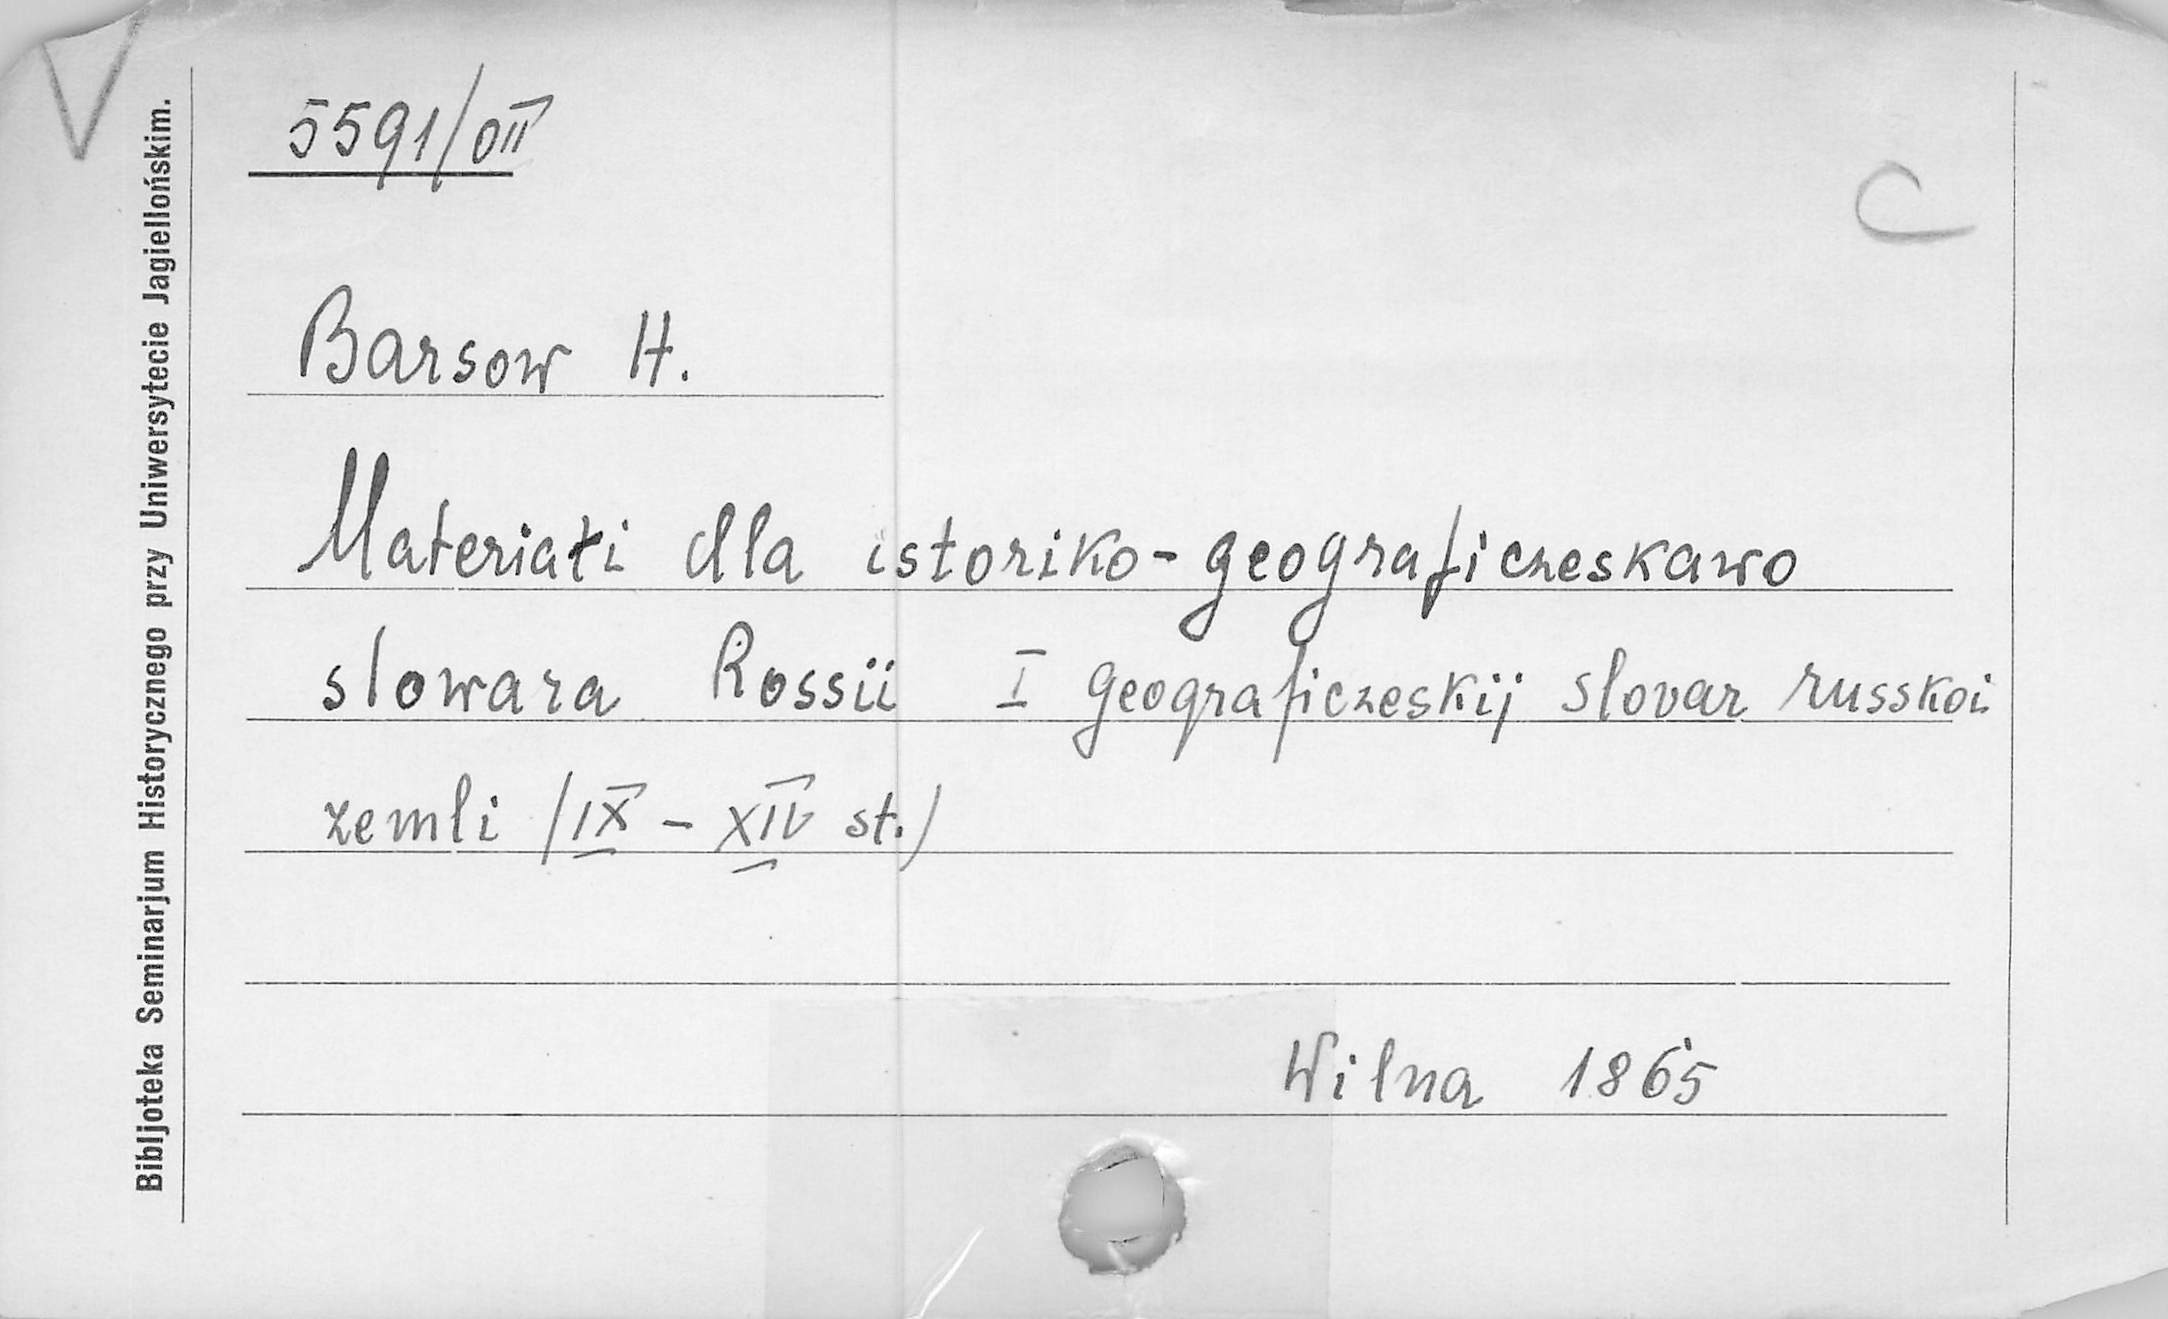 V
5591/OII
C
Barsow H.
Materiałi dla istoriko-geograficzeskawo
slowara Rossii I geograficzeskij slovar russkoi
zemli /IX - XIV st./
Wilna 1865
Bibljoteka Seminarjum Historycznego przy Uniwersytecie Jagiellońskim.